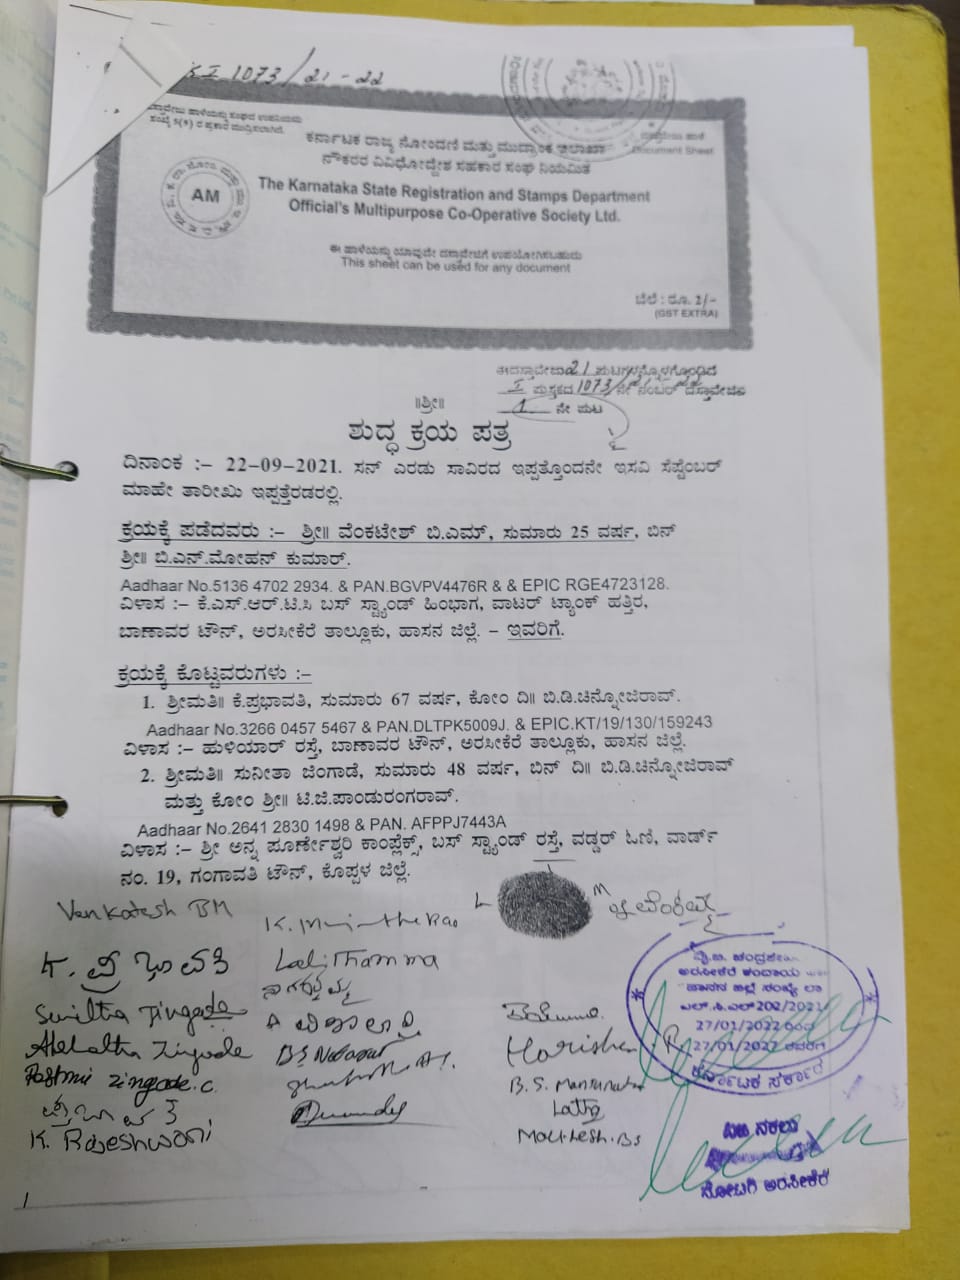 KI 1073/21-22
ದಸ್ತಾವೇಜು ಹಾಳೆ
Document Sheet
ಕರ್ನಾಟಕ ರಾಜ್ಯ ನೋಂದಣಿ ಮತ್ತು ಮುದ್ರಾಂಕ ಇಲಾಖಾ
ನೌಕರರ ವಿವಿಧೋದ್ದೇಶ ಸಹಕಾರ ಸಂಘ ನಿಯಮಿತ
AM
The Karnataka State Registration and Stamps Department
Official's Multipurpose Co-Operative Society Ltd.
ಈ ಹಾಳೆಯನ್ನು ಯಾವುದೇ ದಸ್ತಾವೇಜಿಗೆ ಉಪಯೋಗಿಸಬಹುದು
This sheet can be used for any document
ಬೆಲೆ : ರೂ. 2/-
(GST EXTRA)
ಈದಸ್ತಾವೇಜು 21 ಪುಟಗಳನ್ನೊಳಗೊಂಡಿದೆ
I ಪುಸ್ತಕದ 1073/21-22 ನೇ ನಂಬರ್ ದಸ್ತಾವೇಜಿನ
1 ನೇ ಪುಟ
॥ಶ್ರೀ॥
ಶುದ್ಧ ಕ್ರಯ ಪತ್ರ
ದಿನಾಂಕ :– 22–09–2021. ಸನ್ ಎರಡು ಸಾವಿರದ ಇಪ್ಪತ್ತೊಂದನೇ ಇಸವಿ ಸೆಪ್ಟೆಂಬರ್
ಮಾಹೇ ತಾರೀಖು ಇಪ್ಪತ್ತೆರಡರಲ್ಲಿ.
ಕ್ರಯಕ್ಕೆ ಪಡೆದವರು :– ಶ್ರೀ॥ ವೆಂಕಟೇಶ್ ಬಿ.ಎಮ್, ಸುಮಾರು 25 ವರ್ಷ, ಬಿನ್
ಶ್ರೀ॥ ಬಿ.ಎನ್.ಮೋಹನ್ ಕುಮಾರ್.
Aadhaar No.5136 4702 2934. & PAN.BGVPV4476R & & EPIC RGE4723128.
ವಿಳಾಸ :– ಕೆ.ಎಸ್.ಆರ್.ಟಿ.ಸಿ ಬಸ್ ಸ್ಟ್ಯಾಂಡ್ ಹಿಂಭಾಗ, ವಾಟರ್ ಟ್ಯಾಂಕ್ ಹತ್ತಿರ,
ಬಾಣಾವರ ಟೌನ್, ಅರಸೀಕೆರೆ ತಾಲ್ಲೂಕು, ಹಾಸನ ಜಿಲ್ಲೆ. – ಇವರಿಗೆ.
ಕ್ರಯಕ್ಕೆ ಕೊಟ್ಟವರುಗಳು :–
1. ಶ್ರೀಮತಿ॥ ಕೆ.ಪ್ರಭಾವತಿ, ಸುಮಾರು 67 ವರ್ಷ, ಕೋಂ ದಿ॥ ಬಿ.ಡಿ.ಚಿನ್ನೋಜಿರಾವ್.
Aadhaar No.3266 0457 5467 & PAN.DLTPK5009J. & EPIC.KT/19/130/159243
ವಿಳಾಸ :– ಹುಳಿಯಾರ್ ರಸ್ತೆ, ಬಾಣಾವರ ಟೌನ್, ಅರಸೀಕೆರೆ ತಾಲ್ಲೂಕು, ಹಾಸನ ಜಿಲ್ಲೆ.
2. ಶ್ರೀಮತಿ॥ ಸುನೀತಾ ಜಿಂಗಾಡೆ, ಸುಮಾರು 48 ವರ್ಷ, ಬಿನ್ ದಿ॥ ಬಿ.ಡಿ.ಚಿನ್ನೋಜಿರಾವ್
ಮತ್ತು ಕೋಂ ಶ್ರೀ॥ ಟಿ.ಜಿ.ಪಾಂಡುರಂಗರಾವ್.
Aadhaar No.2641 2830 1498 & PAN. AFPPJ7443A
ವಿಳಾಸ :– ಶ್ರೀ ಅನ್ನ ಪೂರ್ಣೇಶ್ವರಿ ಕಾಂಪ್ಲೆಕ್ಸ್, ಬಸ್ ಸ್ಟ್ಯಾಂಡ್ ರಸ್ತೆ, ವಡ್ಡರ್ ಓಣಿ, ವಾರ್ಡ್
ನಂ. 19, ಗಂಗಾವತಿ ಟೌನ್, ಕೊಪ್ಪಳ ಜಿಲ್ಲೆ.
Venkatesh BM
K. Manjunatha Rao
K. ಪ್ರಭಾವತಿ
Lalithamma
Sunitha Zingade
Harisha
Rashmi Zingade.C.
B.S. Manjunatha
ಪ್ರಭಾವತಿ
Latha
K. Rajeshwari
Mallesh.B.S
ಅರಸೀಕೆರೆ ಕಂದಾಯ
ಹಾಸನ ಜಿಲ್ಲೆ ಸಂಖ್ಯೆ ಲಾ
ಎಲ್.ಸಿ.ಎಲ್ 202/2021
27/01/2022 ರಿಂದ
27/01/2027 ರವರೆಗೆ
ಕರ್ನಾಟಕ ಸರ್ಕಾರ
ನಿಜ ನಕಲು
ನೋಟರಿ ಅರಸೀಕೆರೆ
1